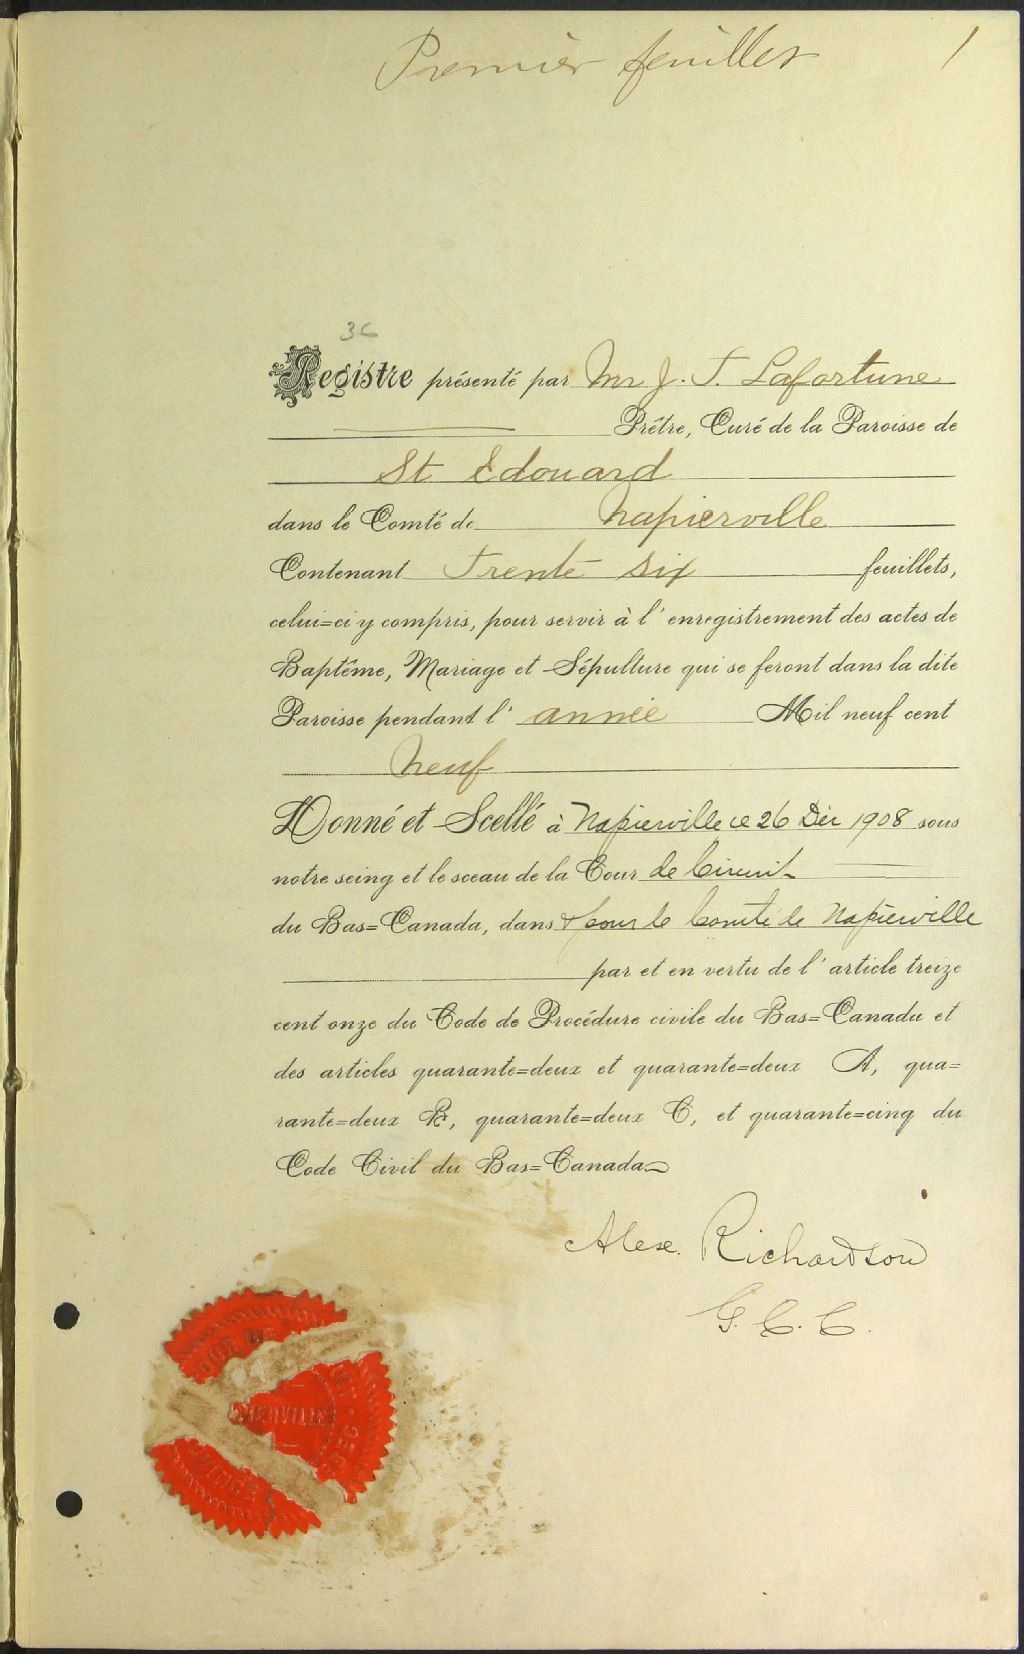 Premier feuillet 1
36
Registre présenté par Mr J. T. Lafortune
Prêtre, Curé de la Paroisse de
St Edouard
dans le Comté de Napierville
Contenant Trente six feuillets,
celui=ci y compris, pour servir à l'enregistrement des actes de
Baptême, Mariage et Sépulture qui se feront dans la dite
Paroisse pendant l'année Mil neuf cent
neuf
Donné et Scellé à Napierville ce 26 Déc 1908 sous
notre seing et le sceau de la Cour de Circuit
du Bas=Canada, dans & pour le Comté de Napierville
par et en vertu de l'article treize
cent onze du Code de Procédure civile du Bas=Canada et
des articles quarante=deux et quarante=deux A, qua=
rante=deux B, quarante=deux C, et quarante=cinq du
Code Civil du Bas=Canada
Alex. Richardson
G. C. C.